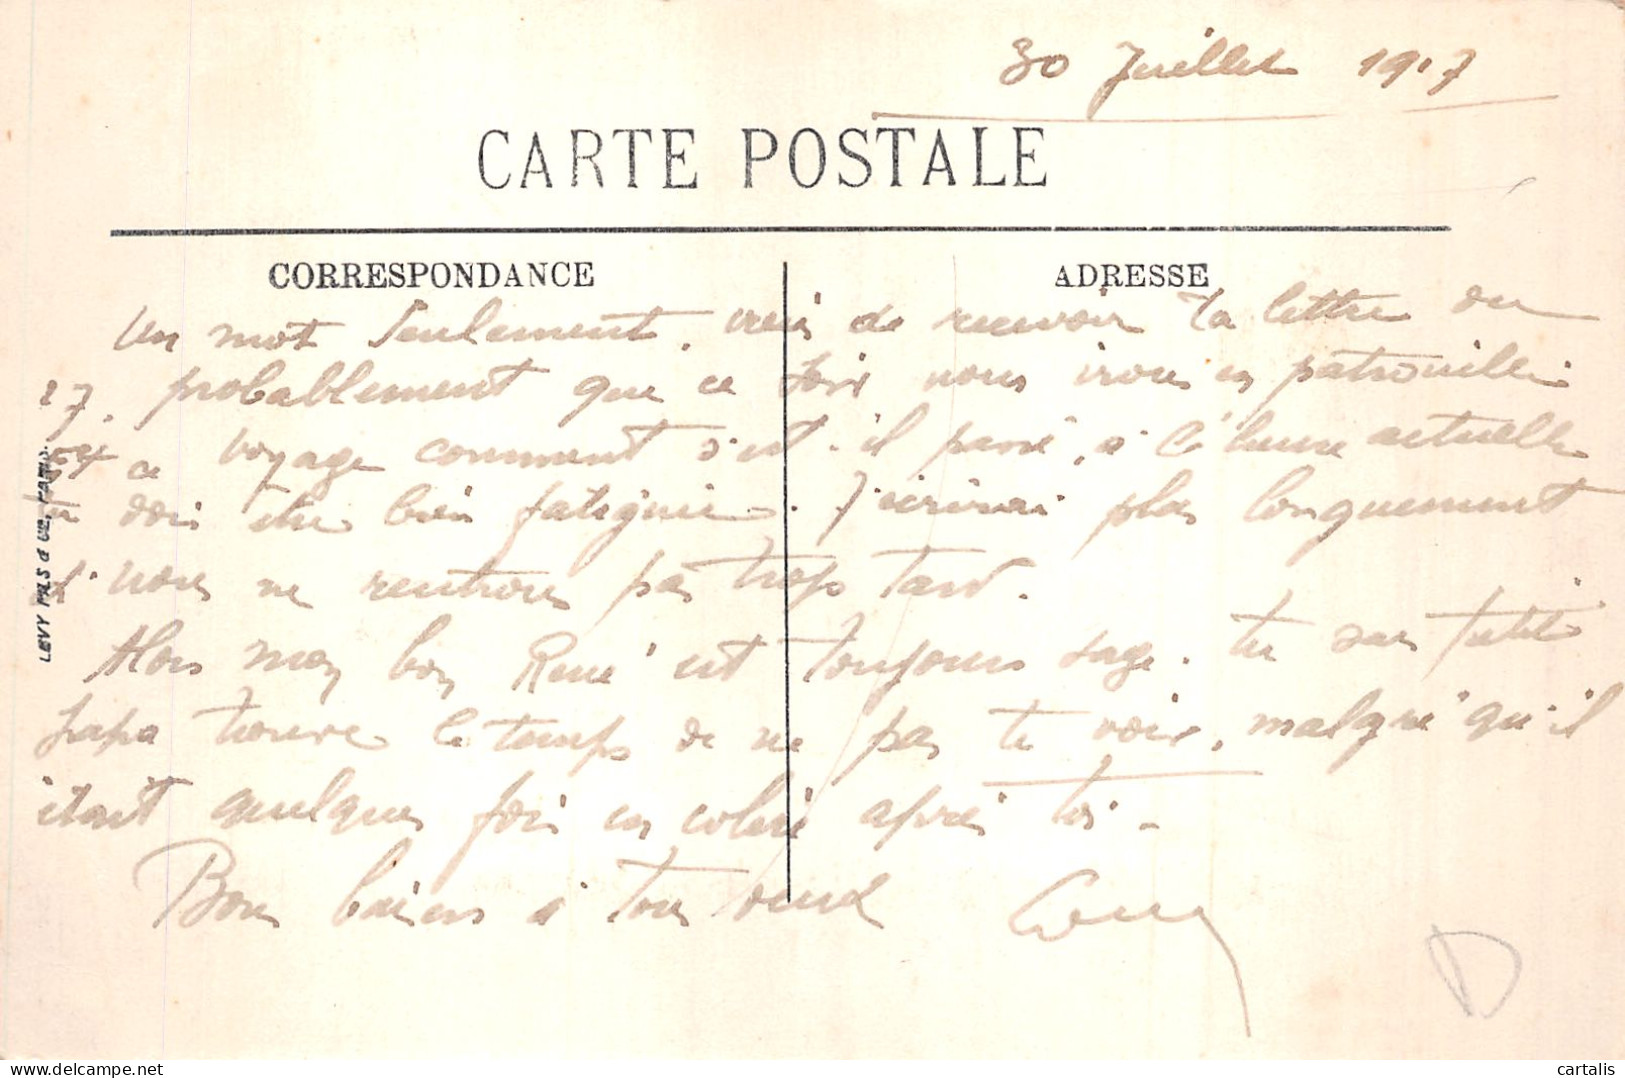 30 Juillet 1917
CARTE POSTALE
CORRESPONDANCE
ADRESSE
Un mot seulement, viens de recevoir ta lettre du
27. probablement que ce soir nous irons en patrouille
ce voyage comment s'est-il passé, à l'heure actuelle
tu dois être bien fatiguée. J'écrirai plus longuement
si nous ne rentrons pas trop tard.
Alors mon bon René est toujours sage. tu sais petit
papa trouve le temps de ne pas te voir, malgré qu'il
était quelques fois en colère après toi.
Bons baisers à tous deux
LEVY FILS & CIE, PARIS
D
delcampe.net
cartalis